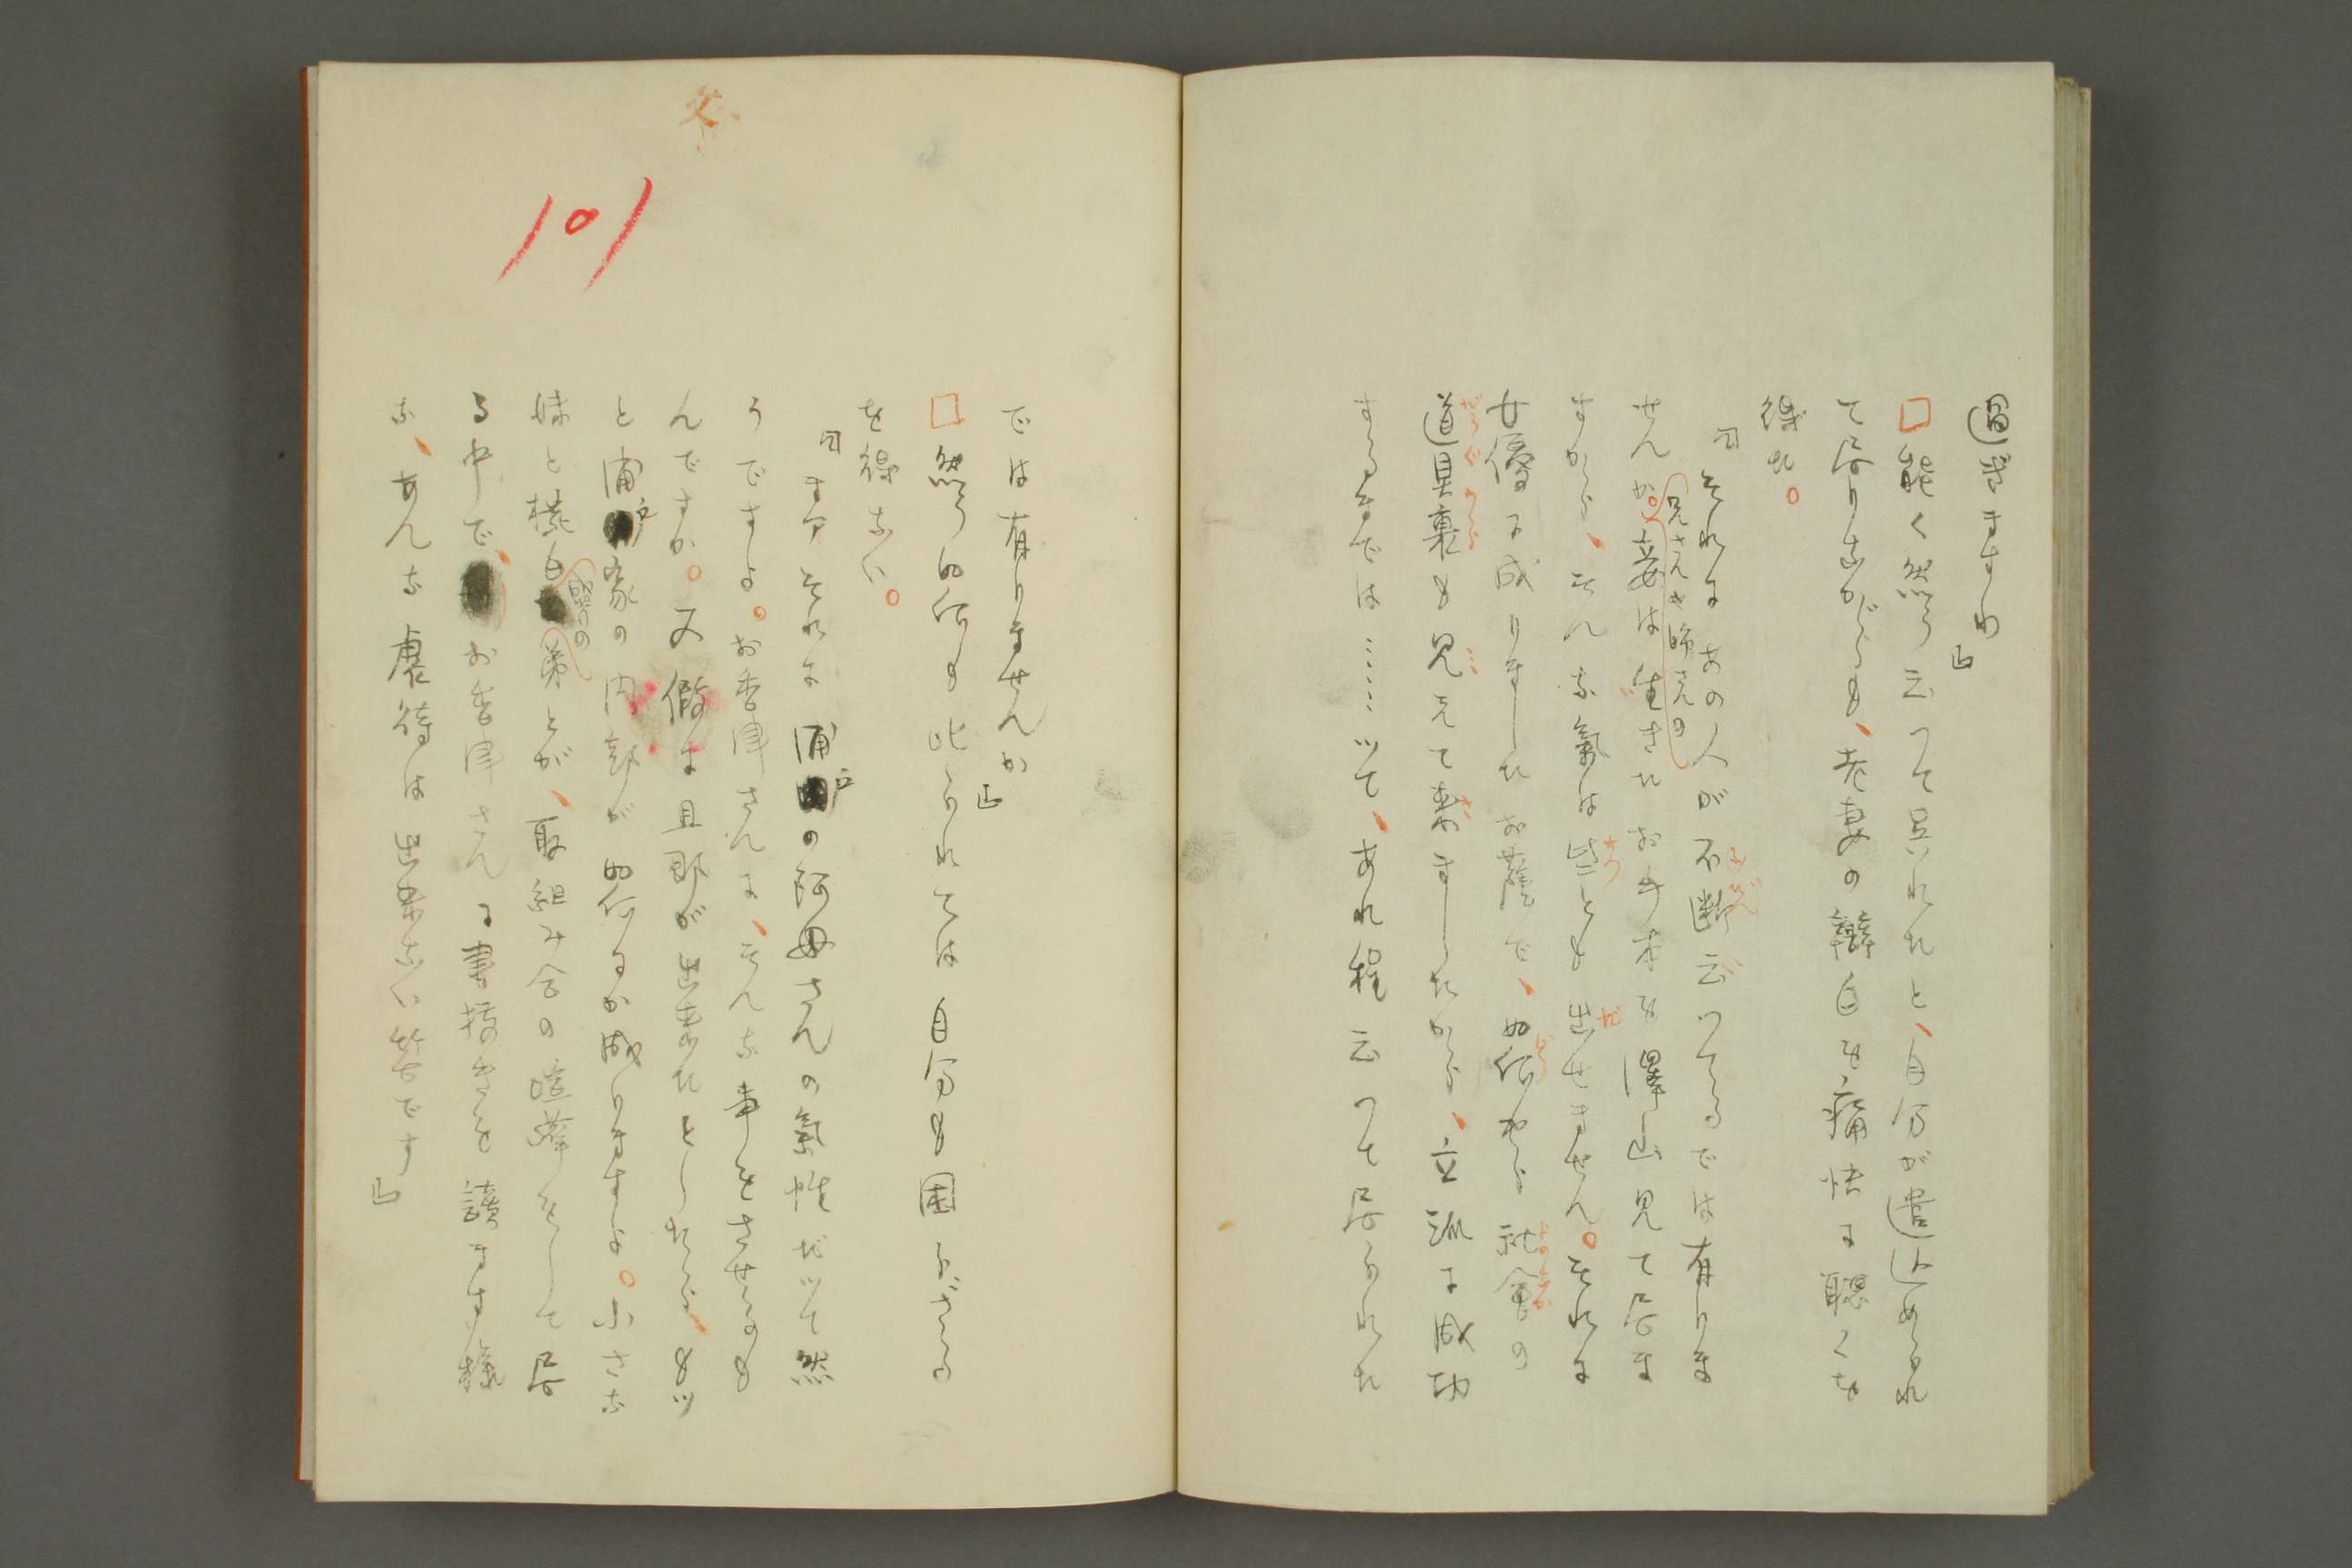 過ぎますわ」
□能く然う云つて呉れたと、自分が遣込められ
て居りながらも、老妻の辯白を痛快に聽くを
得た。
「それにあの人が不断云つてるでは有りま
せんか。兄さんや姉さんの妾は生きたお手本を澤山見て居ま
すから、そんな氣は些とも出せません。それに
女優に成りましたお蔭で、如何やら社會の
道具裏も見えて来ましたから、立派に成功
するまでは……ツて、あれ程云つて居られた
では有りませんか」
□然う如何も此られては自分も困らざる
を得ない。
「まア それに浦戸の阿母さんの氣性だツて然
うですよ。お香津さんに、そんな事をさせるも
んですか。又假に旦那が出来たとしたら、もツ
と浦戸家の内部が如何にか成りますよ。小さな
妹と横白盛りの弟とが、取組み合の喧嘩をして居
る中で、お香津さんに書抜きを讀ます樣
な、あんな虐待は出来ない筈です」
101